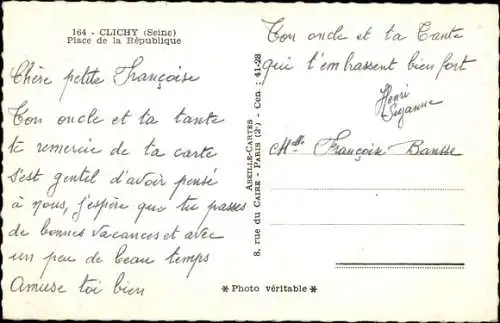 164 - CLICHY (Seine)
Place de la République
Chère petite Françoise
Ton oncle et ta tante
te remercie de ta carte
s'est gentil d'avoir pensé
à nous, j'espère que tu passes
de bonnes vacances et avec
un peu de beau temps
Amuse toi bien
Ton oncle et ta Tante
qui t'embrassent bien fort
Henri
Suzanne
ABEILLE-CARTES
8, rue du CAIRE - PARIS (2e) - Cen : 41-28
Melle Françoise Bansse
* Photo véritable *